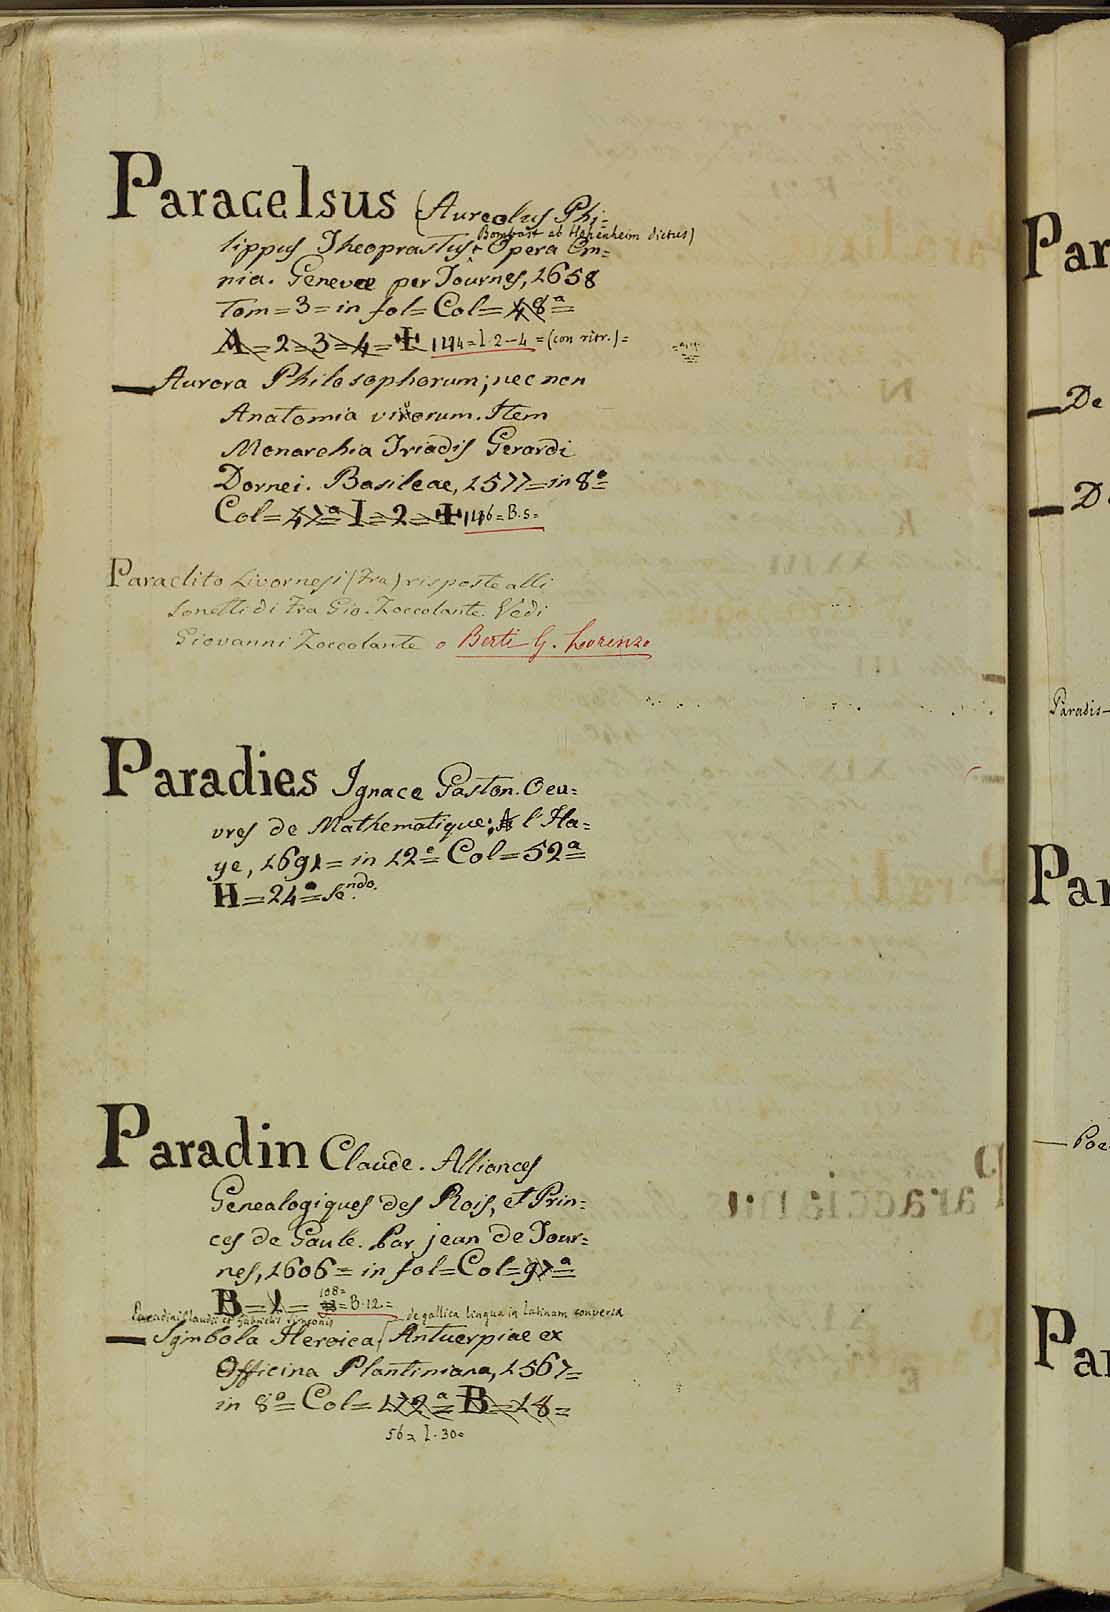 Paracelsus (Aureolus Phi=
Bombast ab Hohenheim dictus)
lippus Theoprastus Opera Om=
nia. Genevæ per Tournes, 1658
Tom=3=in fol=Col=48ª=
A=2=3=4=✠ 114=I·2-4=(con ritr.)=
— Aurora Philosophorum; nec non
Anatomia vivorum. Item
Monarchia Triadis Gerardi
Dornei. Basileae, 1577=in 8º=
Col=47ª=I=2=✠ 116=B.5=
Paraclito Livornesi (Fra) risposte alli
Sonetti di Fra Gio. Zoccolante. Vedi
Giovanni Zoccolante o Berti G. Lorenzo
Paradies Ignace Gaston. Oeu=
vres de Mathematique; A l'Ha=
ye, 1691=in 12º=Col=52ª=
H=24ª=Sendo.
Paradin Claude. Alliances
Genealogiques des Rois, et Prin=
ces de Gaule. Par jean de Tour=
nes, 1606=in fol=Col=97ª=
108=
B=1= =B·12.=
Paradini Claudii et Gabrielis Symeonis de gallica lingua in Latinam conversa
— Symbola Heroica Antuerpiae ex
Officina Plantiniana, 1567=
in 8º=Col=172ª=B=18=
56=I.30=
Par
— De
— D
Paradis-
Par
— Poe
Par